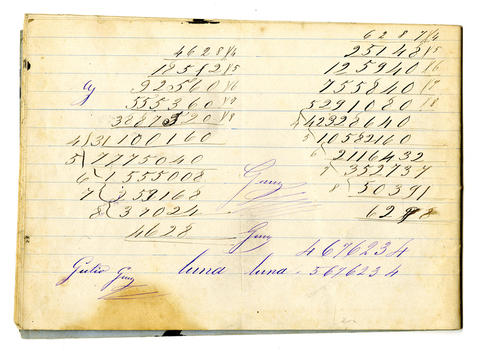 4628 /4
18512 /5
92560 /6
555360 /7
3887520 /8
4 31100160
5 7775040
6 1555008
7 259168
8 37024
4628
6287 /4
25148 /5
125940 /6
755840 /7
5291080 /8
4 42328640
5 10582160
6 2116432
7 352737
8 50391
6298
4676234
luna luna - 5676234